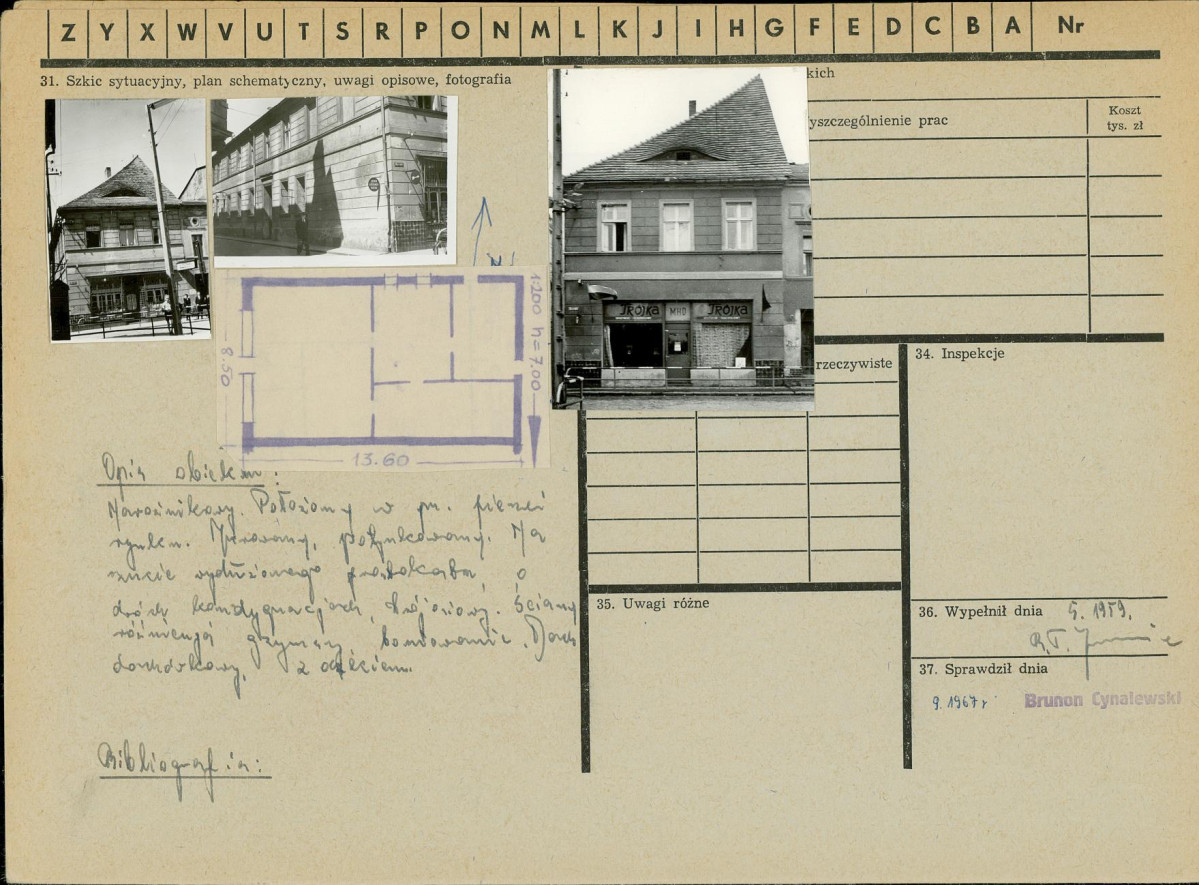 Z Y X W V U T S R P O N M L K J I H G F E D C B A Nr
31. Szkic sytuacyjny, plan schematyczny, uwagi opisowe, fotografia
kich
yszczególnienie prac
Koszt
tys. zł
TRÓJKA MHD TRÓJKA
1:200 h=7.00
8.50
13.60
rzeczywiste
34. Inspekcje
Opis obiektu:
Narożnikowy. Położony w pn. pierzei
rynku. Murowany, potynkowany. Na
rzucie wydłużonego prostokąta, o
dwóch kondygnacjach, trójosiowy. Ściany
różnicują gzymsy, boniowanie. Dach
dachówkowy, z okiem.
Bibliografia:
35. Uwagi różne
36. Wypełnił dnia 5. 1959.
37. Sprawdził dnia
9. 1967 r Brunon Cynalewski